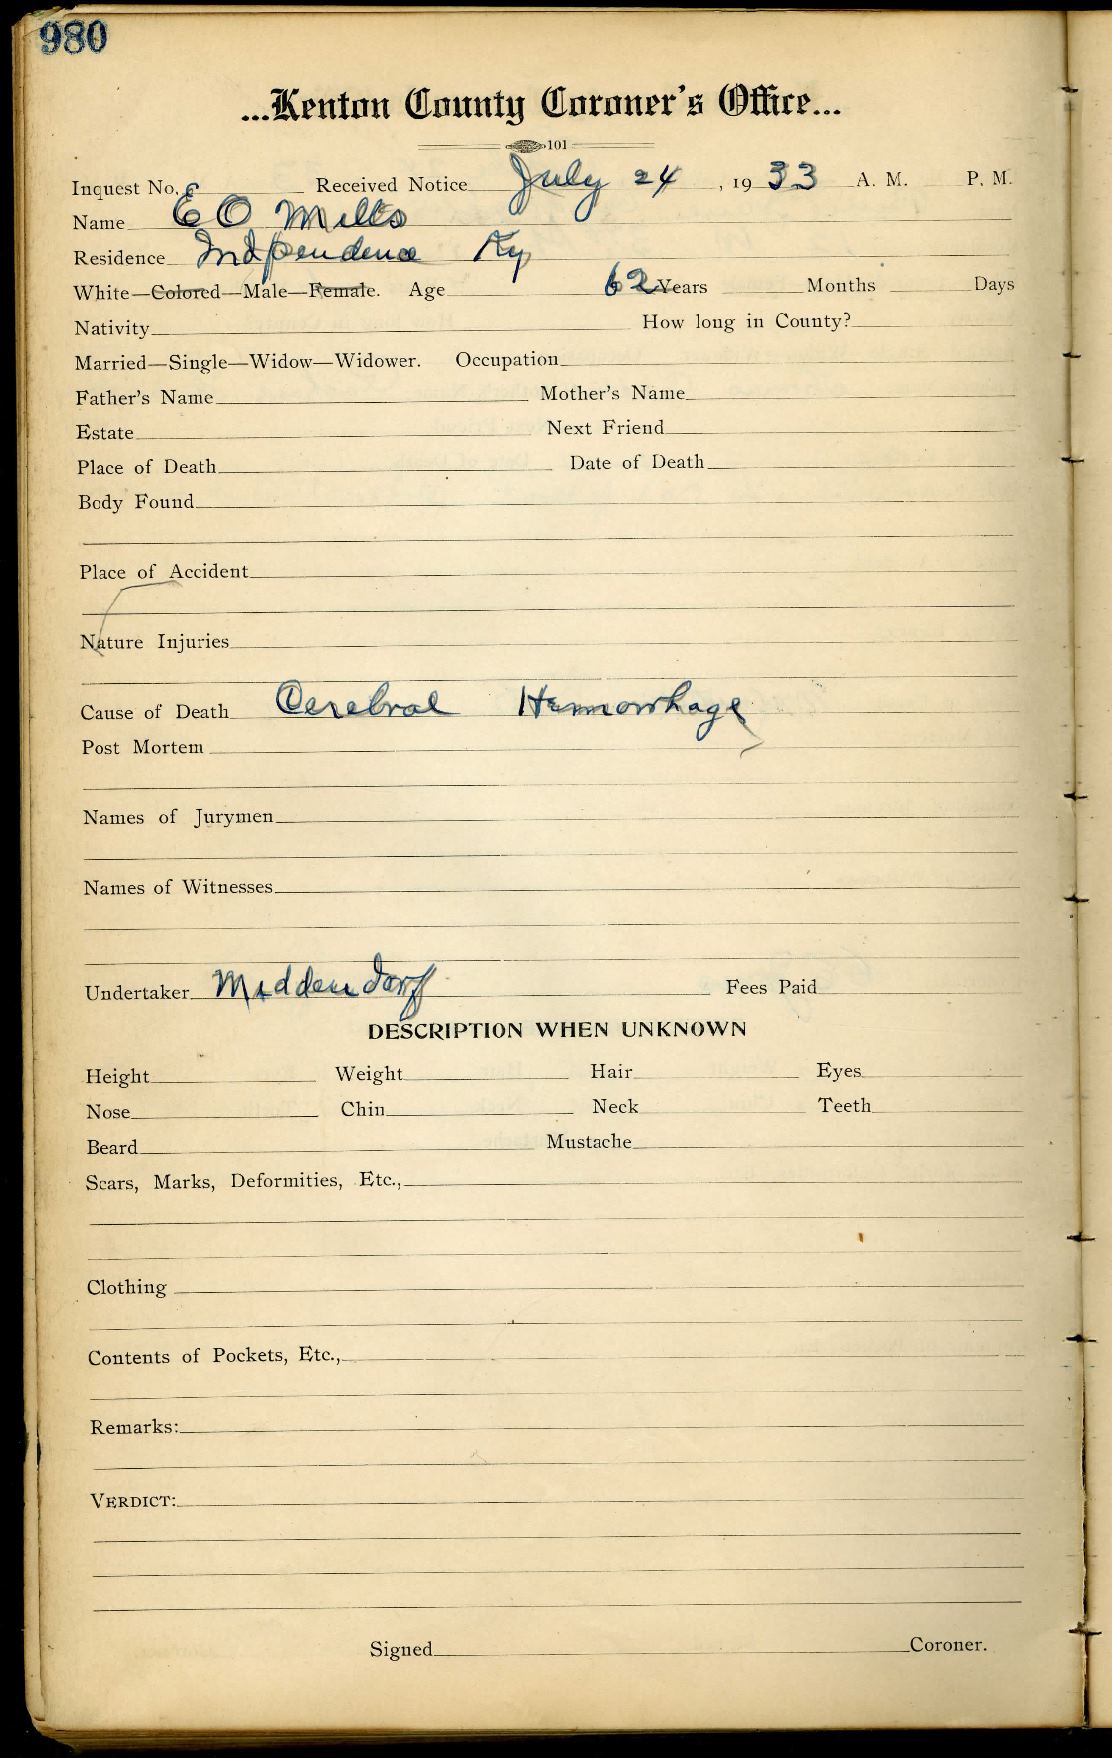 980
...Kenton County Coroner's Office...
101
Inquest No. Received Notice July 24, 1933 A. M. P. M.
Name E O Mills
Residence Indpendence Ky
White—Colored—Male—Female. Age 62 Years Months Days
Nativity How long in County?
Married—Single—Widow—Widower. Occupation
Father's Name Mother's Name
Estate Next Friend
Place of Death Date of Death
Body Found
Place of Accident
Nature Injuries
Cause of Death Cerebral Hemorrhage
Post Mortem
Names of Jurymen
Names of Witnesses
Undertaker Middendorf Fees Paid
DESCRIPTION WHEN UNKNOWN
Height Weight Hair Eyes
Nose Chin Neck Teeth
Beard Mustache
Scars, Marks, Deformities, Etc.,
Clothing
Contents of Pockets, Etc.,
Remarks:
VERDICT:
Signed Coroner.